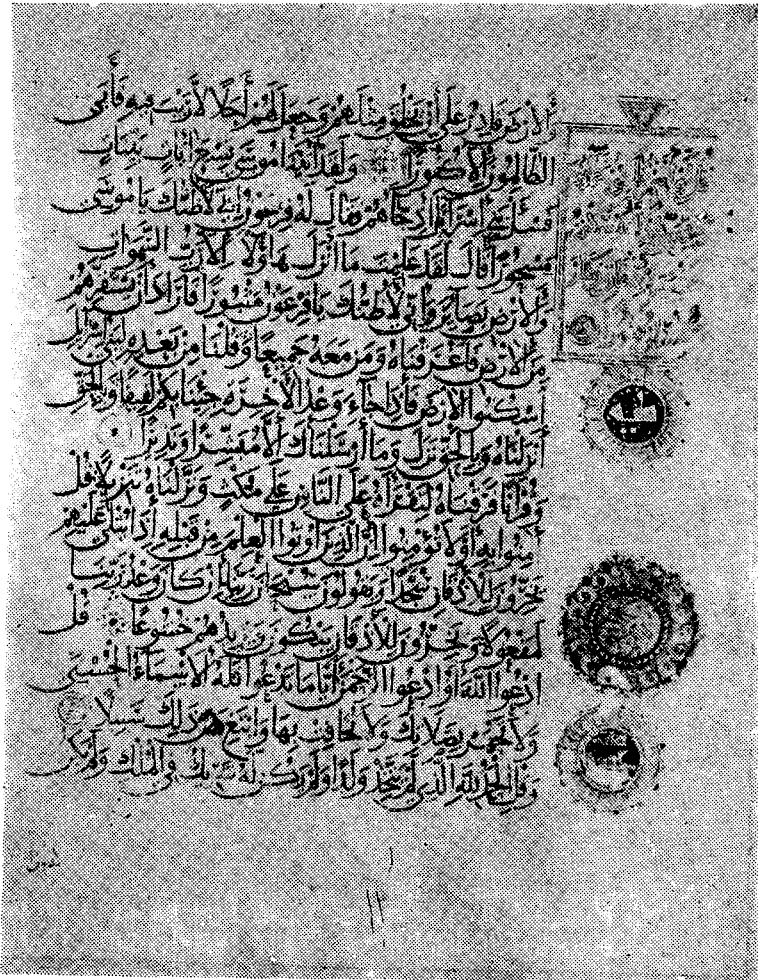 وَالْأَرْضَ قَادِرٌ عَلَى أَنْ يَخْلُقَ مِثْلَهُمْ وَجَعَلَ لَهُمْ أَجَلًا لَا رَيْبَ فِيهِ فَأَبَى
الظَّالِمُونَ إِلَّا كُفُورًا وَلَقَدْ آتَيْنَا مُوسَى تِسْعَ آيَاتٍ بَيِّنَاتٍ
فَسْئَلْ بَنِي إِسْرَائِيلَ إِذْ جَاءَهُمْ فَقَالَ لَهُ فِرْعَوْنُ إِنِّي لَأَظُنُّكَ يَا مُوسَى
مَسْحُورًا قَالَ لَقَدْ عَلِمْتَ مَا أَنْزَلَ هَؤُلَاءِ إِلَّا رَبُّ السَّمَوَاتِ
وَالْأَرْضِ بَصَائِرَ وَإِنِّي لَأَظُنُّكَ يَا فِرْعَوْنُ مَثْبُورًا فَأَرَادَ أَنْ يَسْتَفِزَّهُمْ
مِنَ الْأَرْضِ فَأَغْرَقْنَاهُ وَمَنْ مَعَهُ جَمِيعًا وَقُلْنَا مِنْ بَعْدِهِ لِبَنِي إِسْرَائِيلَ
اسْكُنُوا الْأَرْضَ فَإِذَا جَاءَ وَعْدُ الْآخِرَةِ جِئْنَا بِكُمْ لَفِيفًا وَبِالْحَقِّ
أَنْزَلْنَاهُ وَبِالْحَقِّ نَزَلَ وَمَا أَرْسَلْنَاكَ إِلَّا مُبَشِّرًا وَنَذِيرًا
وَقُرْآنًا فَرَقْنَاهُ لِتَقْرَأَهُ عَلَى النَّاسِ عَلَى مُكْثٍ وَنَزَّلْنَاهُ تَنْزِيلًا قُلْ
آمِنُوا بِهِ أَوْ لَا تُؤْمِنُوا إِنَّ الَّذِينَ أُوتُوا الْعِلْمَ مِنْ قَبْلِهِ إِذَا يُتْلَى عَلَيْهِمْ
يَخِرُّونَ لِلْأَذْقَانِ سُجَّدًا وَيَقُولُونَ سُبْحَانَ رَبِّنَا إِنْ كَانَ وَعْدُ رَبِّنَا
لَمَفْعُولًا وَيَخِرُّونَ لِلْأَذْقَانِ يَبْكُونَ وَيَزِيدُهُمْ خُشُوعًا قُلْ
ادْعُوا اللَّهَ أَوِ ادْعُوا الرَّحْمَنَ أَيًّا مَا تَدْعُوا فَلَهُ الْأَسْمَاءُ الْحُسْنَى
وَلَا تَجْهَرْ بِصَلَاتِكَ وَلَا تُخَافِتْ بِهَا وَابْتَغِ بَيْنَ ذَلِكَ سَبِيلًا
وَقُلِ الْحَمْدُ لِلَّهِ الَّذِي لَمْ يَتَّخِذْ وَلَدًا وَلَمْ يَكُنْ لَهُ شَرِيكٌ فِي الْمُلْكِ وَلَمْ يَكُنْ